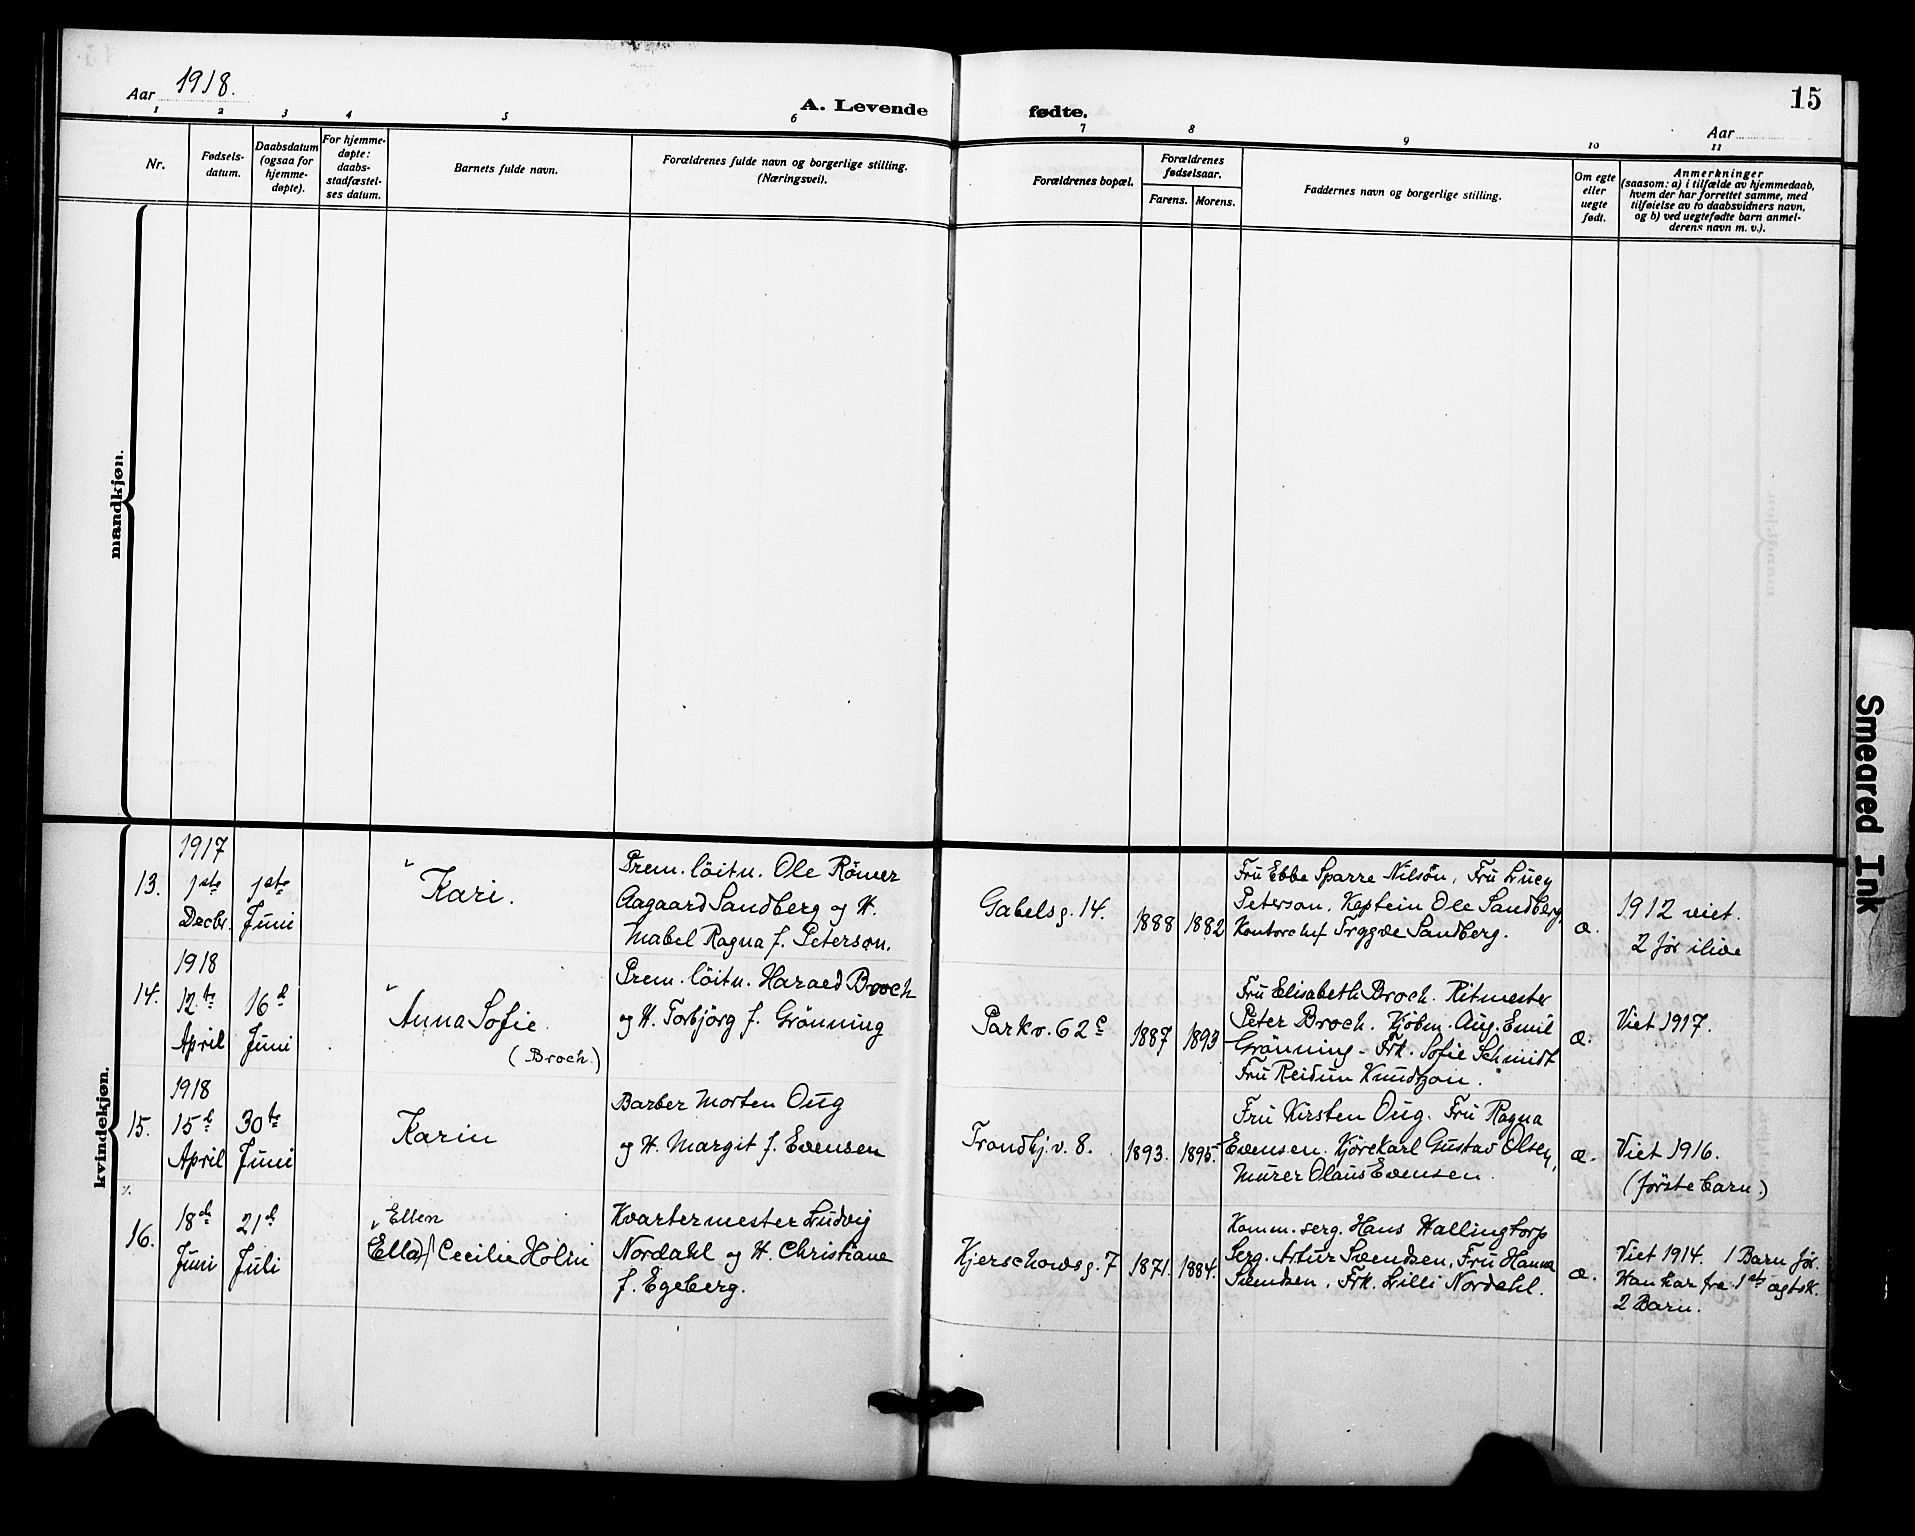 Aar 1918.
A. Levende
fødte.
15
Aar
1 2 3 4 5 6 7 8 9 10 11
Nr.
Fødsels-
datum.
Daabsdatum
(ogsaa for
hjemme-
døpte).
For hjemme-
døpte:
daabs-
stadfæstel-
ses datum.
Barnets fulde navn.
Forældrenes fulde navn og borgerlige stilling.
(Næringsvei).
Forældrenes bopæl.
Forældrenes
fødselsaar.
Farens. Morens.
Faddernes navn og borgerlige stilling.
Om egte
eller
uegte
født.
Anmerkninger
(saasom: a) i tilfælde av hjemmedaab,
hvem der har forrettet samme, med
tilføielse av to daabsvidners navn,
og b) ved uegtefødte barn anmel-
derens navn m. v.).
mandkjøn.
kvindekjøn.
13.
1917
1ste
Decbr.
1ste
Juni
Kari.
Prem. löitn. Ole Römer
Aagaard Sandberg og H.
Mabel Ragna f. Peterson.
Gabelsg. 14.
1888
1882
Fru Ebbe Sparre Nilsön, Fru Lucy
Peterson, Kaptein Ole Sandberg,
Kontorchef Tryggve Sandberg.
æ.
1912 viet.
2 før ilive
14.
1918
12.te
April
16d
Juni
Anna Sofie.
(Broch.)
Prem. löitn. Harald Broch
og H. Torbjörg f. Grönning
Parkv. 62c
1887
1893
Fru Elisabeth Broch. Ritmester
Peter Broch. Kjöbm. Aug. Emil
Grönning - Frk. Sofie Schmidt
Fru Reidun Knudtzon.
æ.
Viet 1917.
15.
1918
15d
April
30te
Juni
Karin
Barber Morten Oug
og H. Margit f. Evensen
Trondhj.v. 8.
1893.
1895
Fru Kirsten Oug. Fru Ragna
Evensen. Kjörekarl Gustav Olsen,
Murer Olaus Evensen.
æ.
Viet 1916.
(förste barn.)
16.
18de
Juni
21d
Juli
Ellen
Ella Cecilie Holm
Kvartermester Ludvig
Nordahl og H. Christiane
f. Egeberg.
Kjerschowsg. 7
1871.
1884.
Komm. serg. Hans Hallingtorp
Serg. Artur Svendsen, Fru Hanna
Svendsen, Frk. Lilli Nordahl.
æ.
Viet 1914. 1 Barn før.
Han har fra 1ste ægtsk.
2 Barn.
Smeared Ink